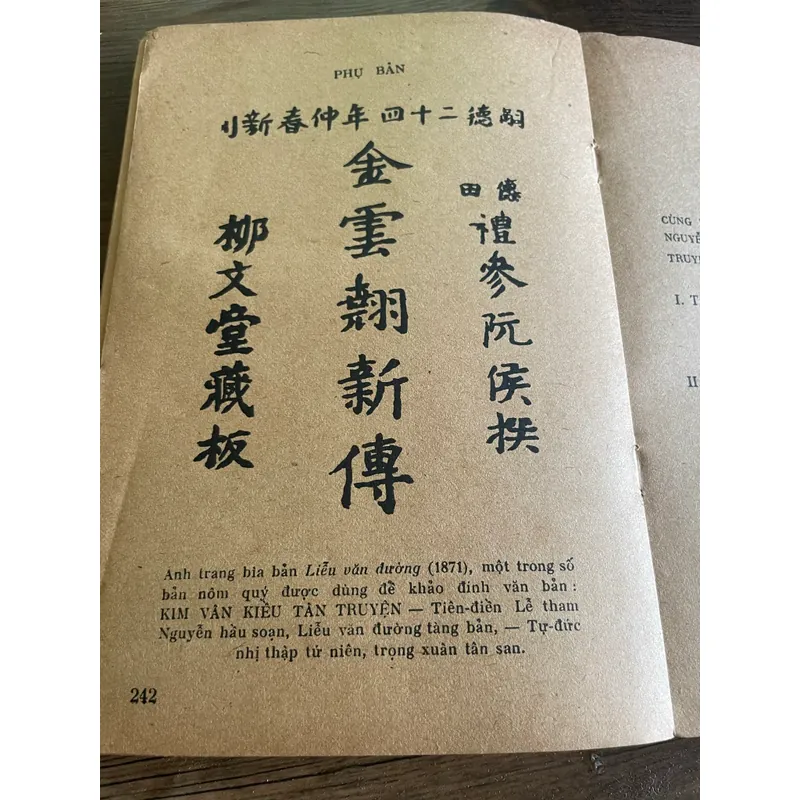 PHỤ BẢN
嗣德二十四年仲春新刊
僊田
禮參阮侯撰
金雲翹新傳
柳文堂藏板
Ảnh trang bìa bản Liễu văn đường (1871), một trong số
bản nôm quý được dùng để khảo đính văn bản :
KIM VÂN KIỀU TÂN TRUYỆN — Tiên-điền Lễ tham
Nguyễn hầu soạn, Liễu văn đường tàng bản, — Tự-đức
nhị thập tứ niên, trọng xuân tân san.
242
CÙNG
I. T
II.